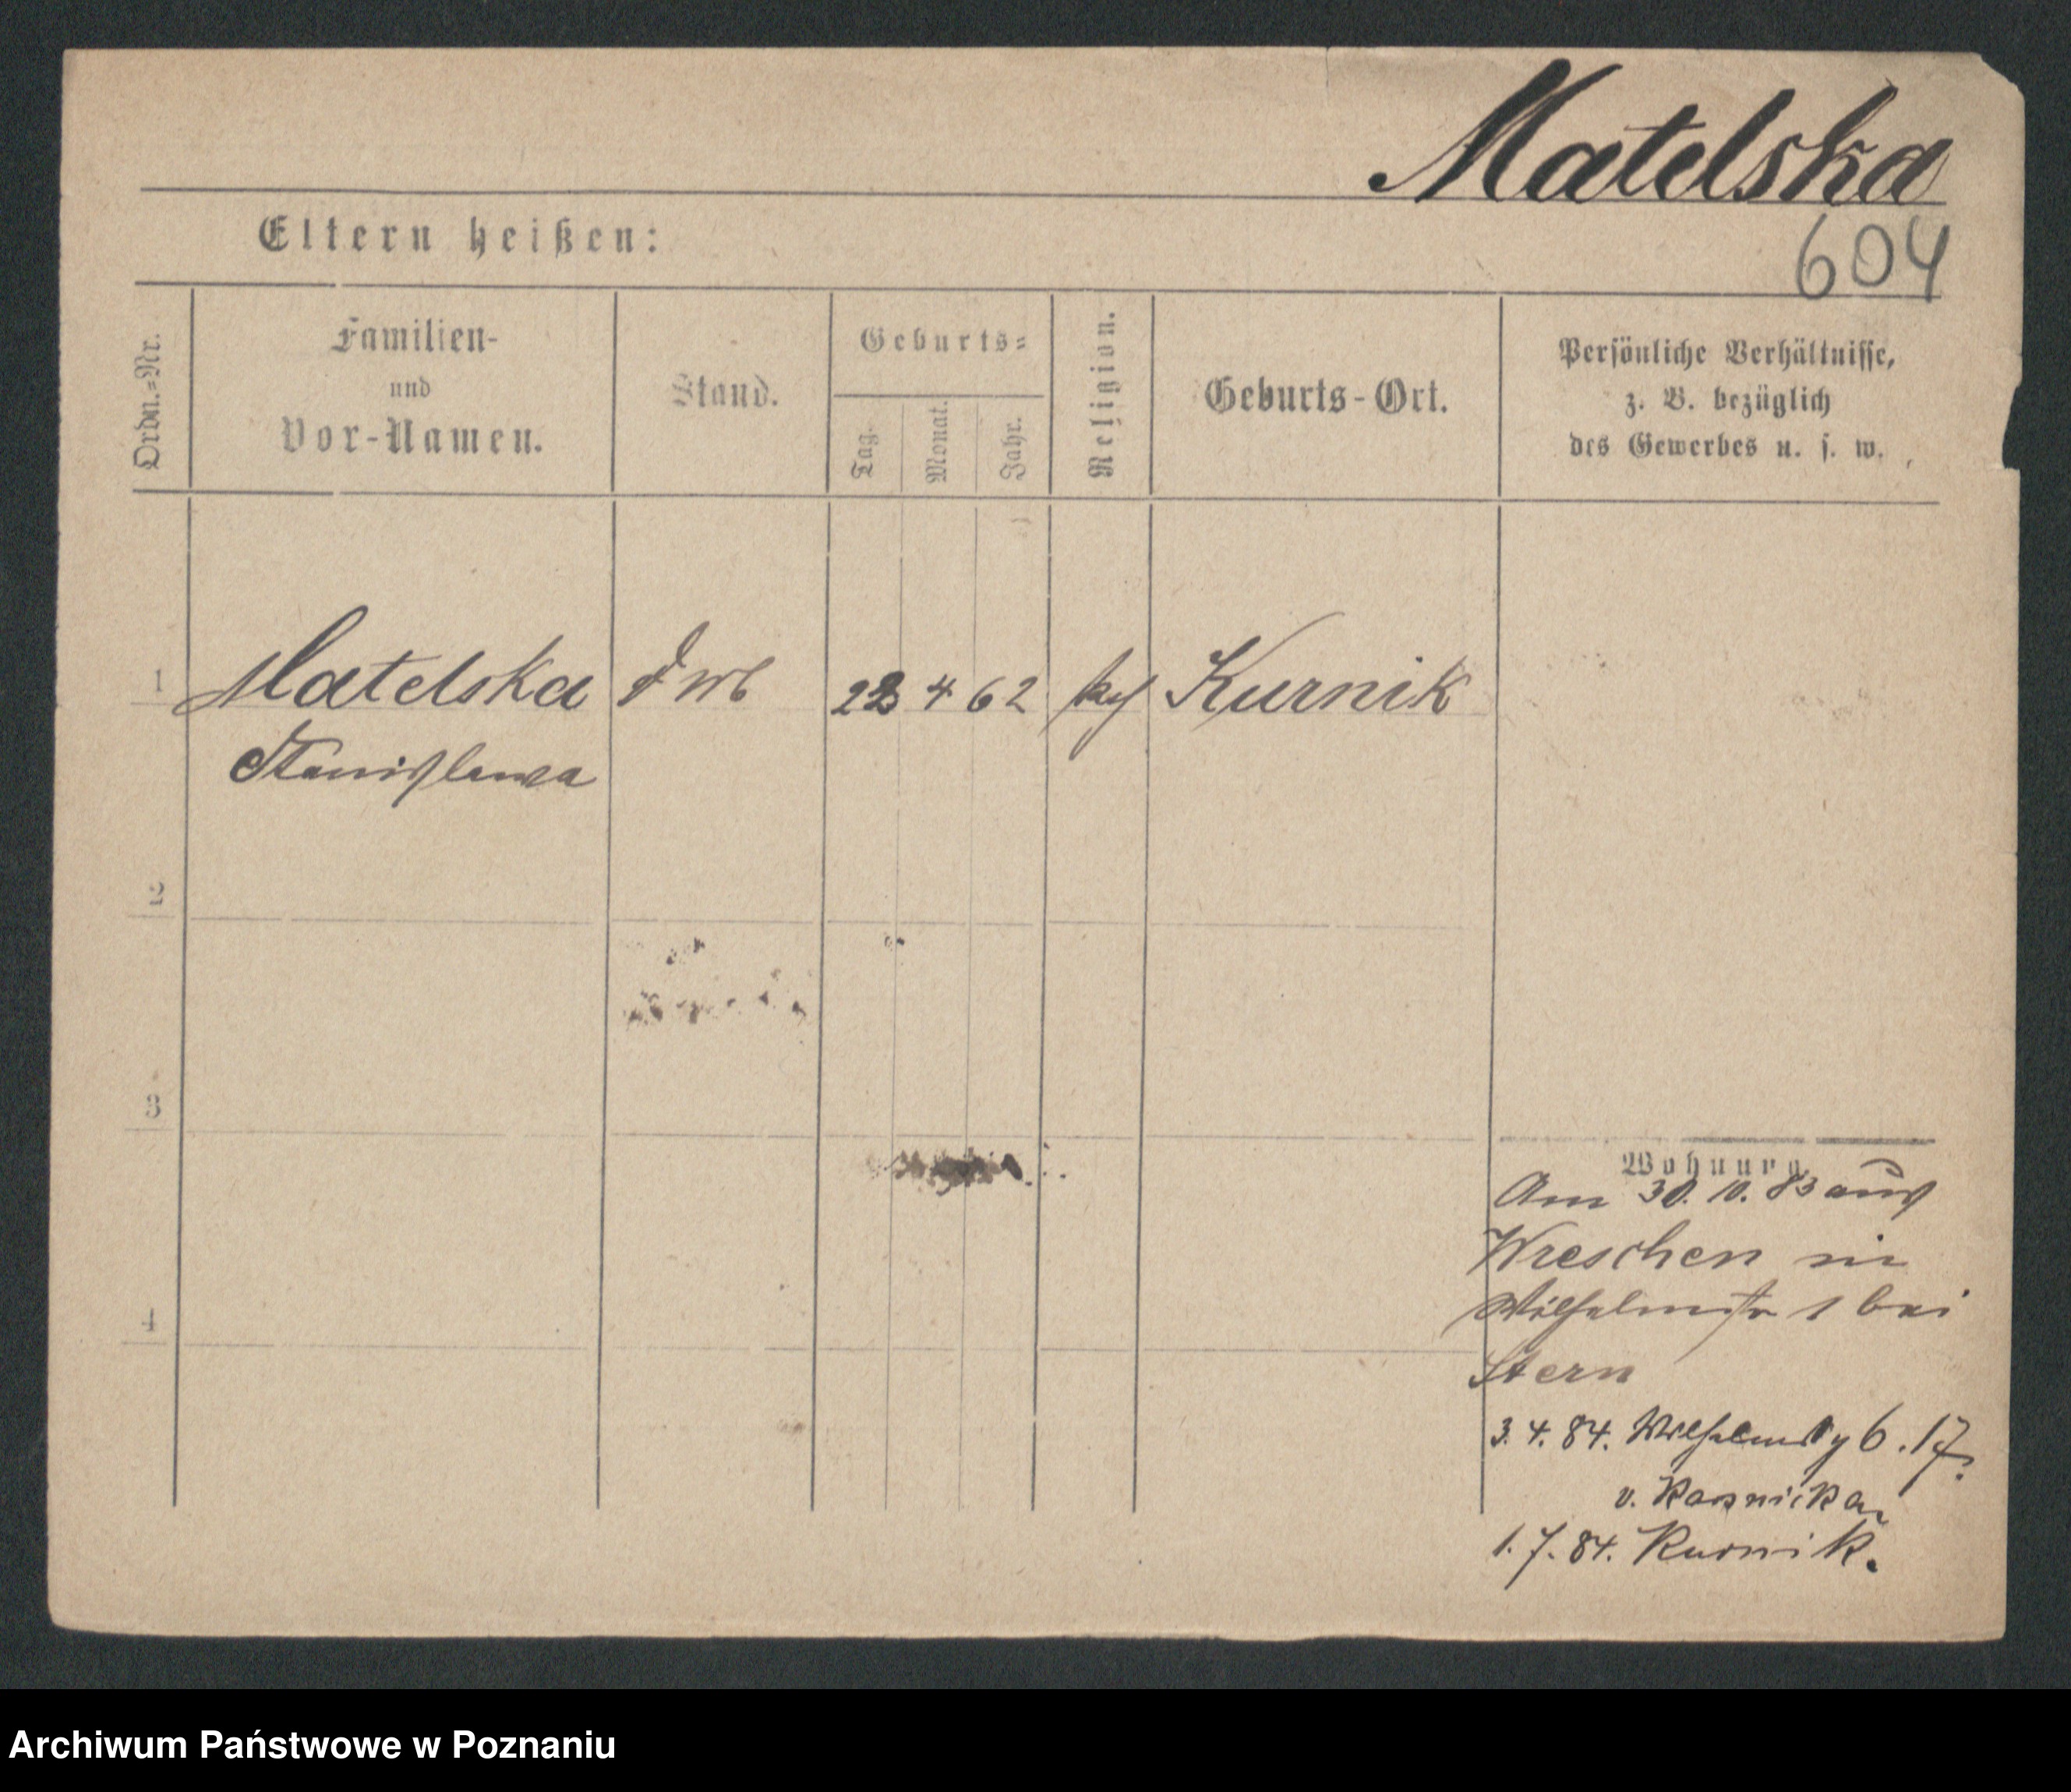 Matelska
604
Eltern heißen:
Ordn.=Nr.
Familien-
und
Vor-Namen.
Stand.
Geburts=
Tag.
Monat.
Jahr.
Religion.
Geburts-Ort.
Persönliche Verhältnisse,
z. B. bezüglich
des Gewerbes u. s. w.
1 Matelska 4 62 Kurnik
Stanislawa
2
3
4
Wohnung
Am 30. 10. 83 aus
Wreschen in
Wilhelmstr 1 bei
Stern
3. 4. 84. 17.
v.
1. 7. 84. Kurnik.
Archiwum Państwowe w Poznaniu